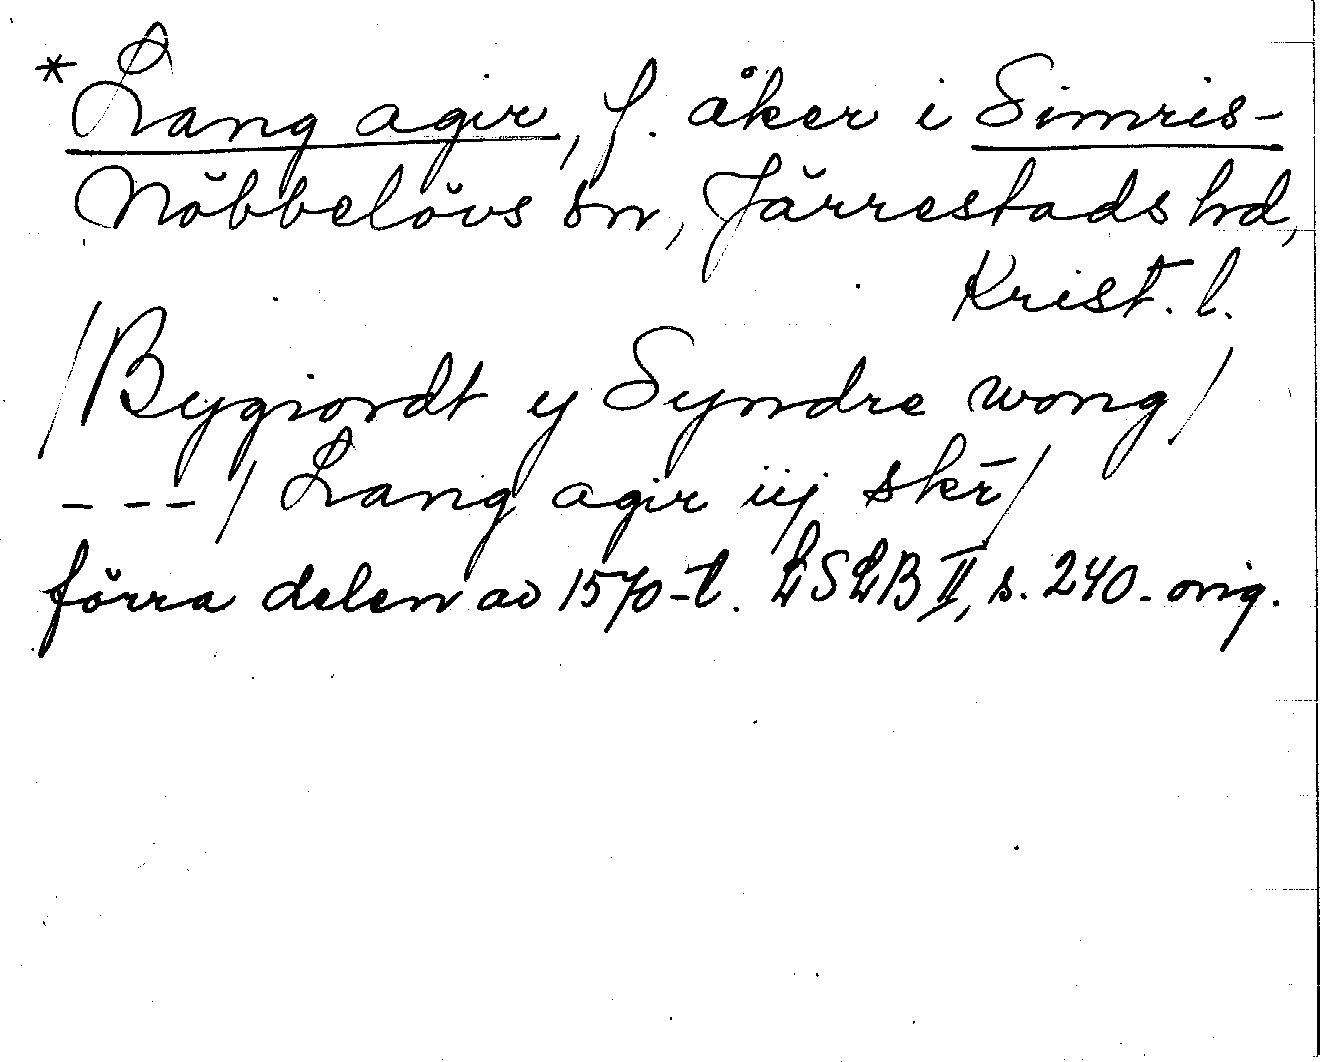 *Lang agir, f. åker i Simris-
Nöbbelövs sn, Järrestads hd,
Krist. l.
/Bygiordt y Syndre wong/
---/ Lang agir iij skr̄/
förra delen av 1570-t. LSLB II, s. 240. orig.